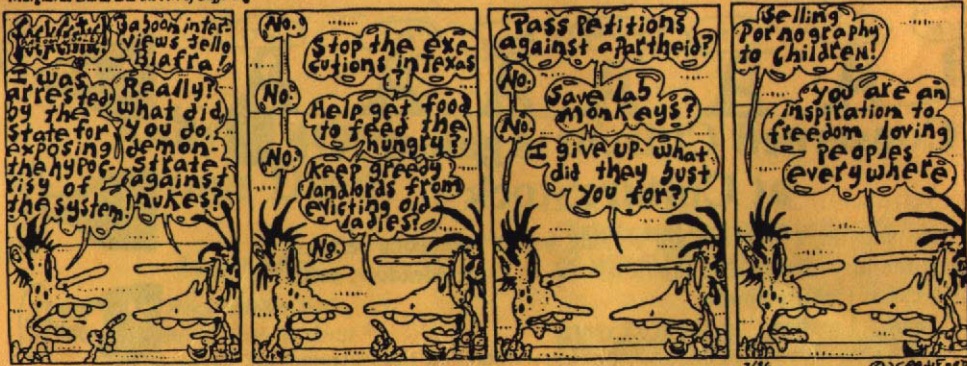 Baboon inter-
views Jello
Biafra!
I was
arrested
by the
State for
exposing
the hypoc-
risy of
the system
Really?
what did
you do,
demon-
strate
against
nukes?
No.
Stop the exe-
cutions in Texas
?
No.
Help get food
to feed the
hungry?
No.
Keep greedy
landlords from
evicting old
ladies?
No.
Pass Petitions
against apartheid?
No.
Save Lab
Monkeys?
No.
I give up. what
did they bust
you for?
Selling
Pornography
to Children!
You are an
inspiration to
freedom loving
Peoples
everywhere